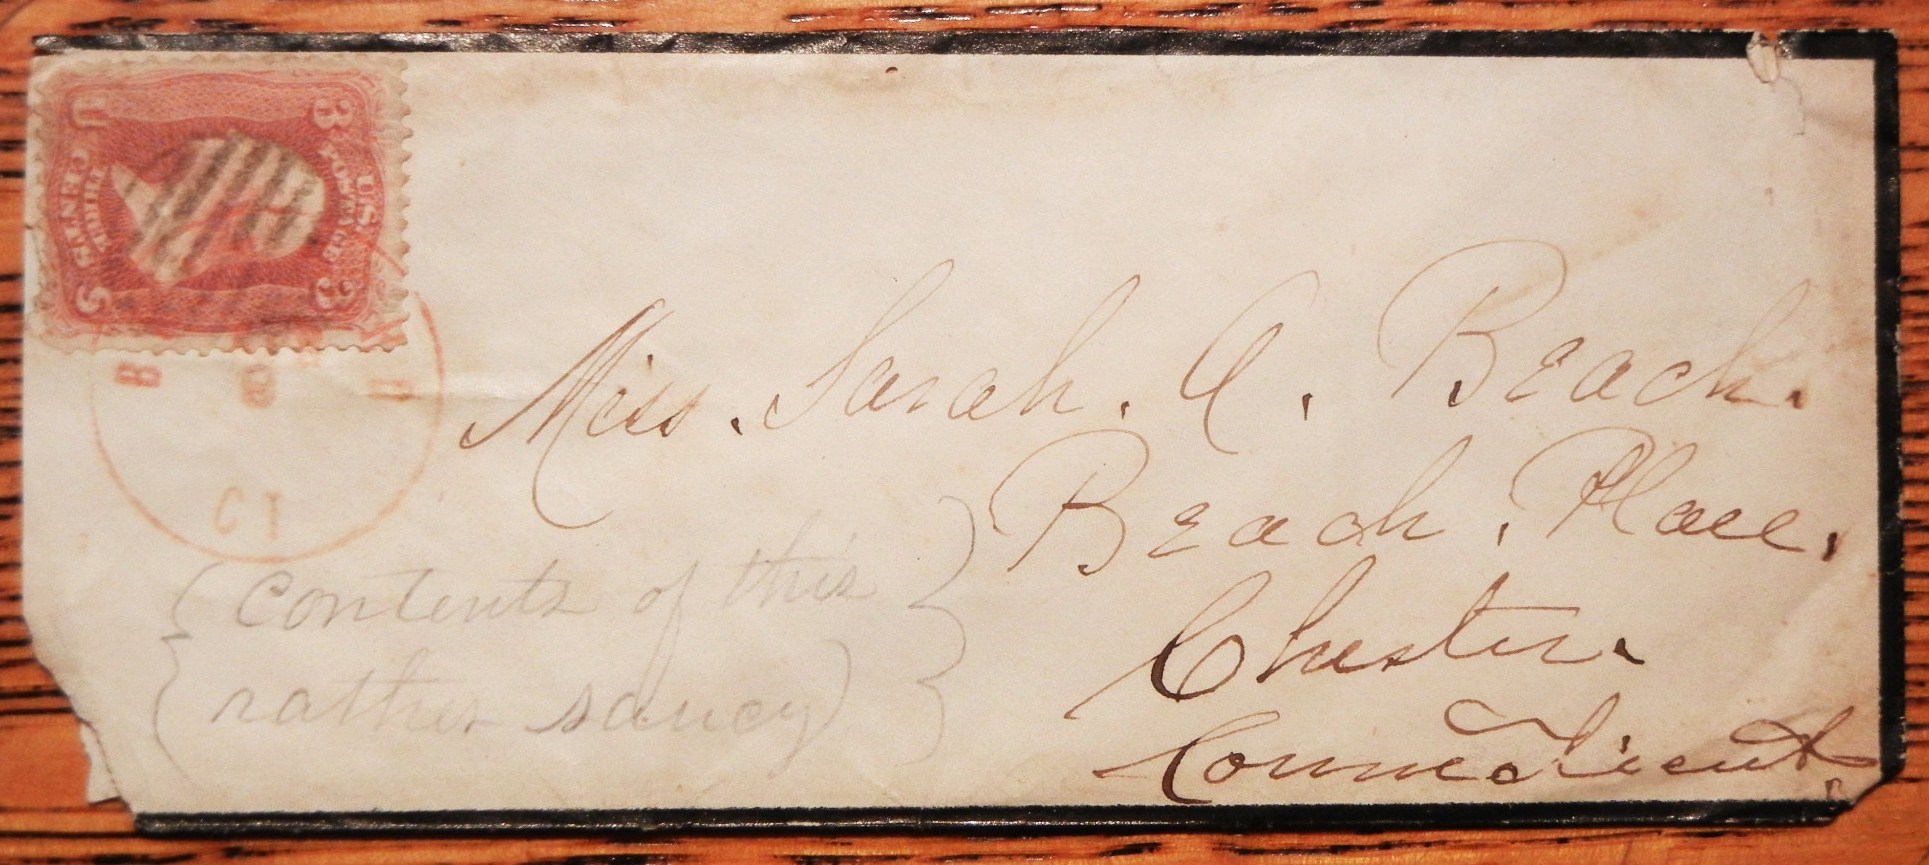 U 3
U.S. POSTAGE
THREE CENTS
S 3
B
CT
Miss. Sarah. A. Beach.
Beach. Place.
Chester.
Connecticut.
(contents of this
rather saucy)